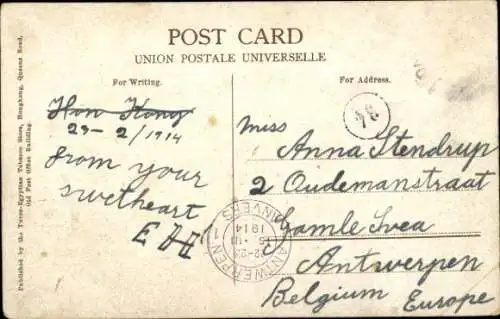 POST CARD
UNION POSTALE UNIVERSELLE
For Writing.
For Address.
Hon Kong
29-2/1914
from your
swetheart
E
Miss
Anna Stendrup
2 Oudemanstraat
Gamle Svea
Antwerpen
Belgium Europe
ANTWERPEN 1
22-23
1914
ANVERS
Published by the Turco-Egyptian Tobacco Store, Hongkong, Queens Road,
Old Post Office Building.